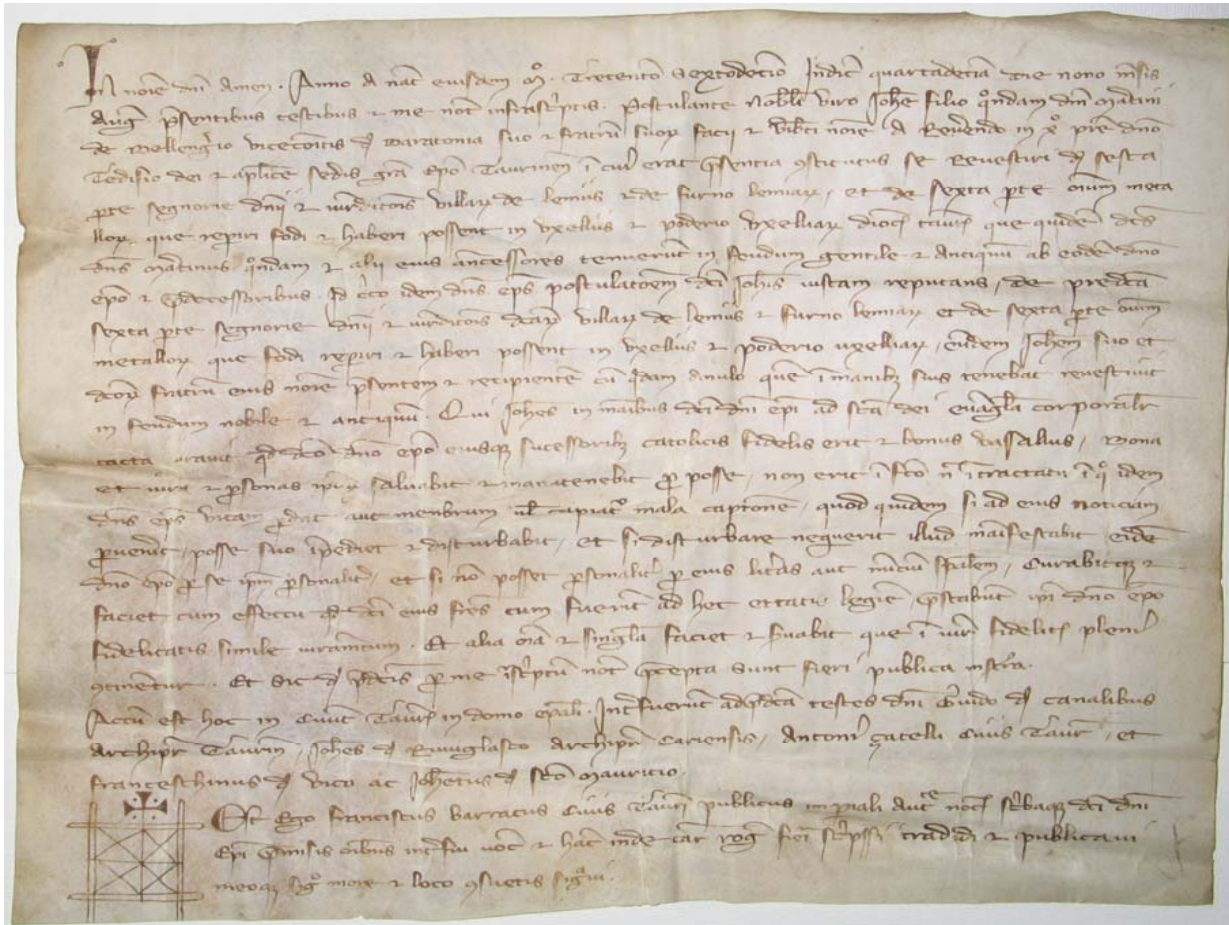 In noie dni Amen. Anno a nat eiusdem Mº. Trecenteo Sextodecio Indice quartadecia die nono mesis
Aug psentibus testibus & me not infrascriptis. Postulante nobili viro Johe filio qondam dni Martini
de vicecoitis de Baratonia suo & fratru suor facii & noie a Revendo in xº pre dno
dei & aplice sedis gra epo Taurinen i cui erat psentia ostitutus se revestiri de sesta
pte segnorie dnii & iurditois villar de lemiis & de furno lemiar, et de sexta pte oium meta
llor que repiri fodi & haberi possent in uxellus & poderio uxelliar dioc que quidem
dns Martinus qondam & alii eius ancessores tenuerut in feudum gentile & antiquum ab eode dno
epo & pdecessoribus. Id cco idem dns eps postulatoem dci Johis iustam reputans, de predca
sexta pte segnorie dnii & iurditois dcar villar de lemiis & furno lemiar et de sexta pte oium
metallor que fodi repiri & haberi possent in uxellus & poderio uxelliar, eudem Johem suo et
dcor fratru eius noie psentem & recipiente cu qdam anulo que i manibz suis tenebat revestivit
in feudum nobile & antiquum. Qui Johes in maibus dci dni epi ad sca dei euagla corporalr
tacta iravit qd dco dno epo eiusqz sucessoribz catolicis fidelis erit & bonus vassallus, bona
et iura & psonas ipor salvabit & manutenebit p posse, non erit i fco n i tractatu i qº idem
dns eps vitam pdat aut menbrum ul capiat mala captone, quod quidem si ad eius noticiam
pvenit, posse suo ipediet & disturbabit, et si disturbare nequerit illud maifestabit eide
dno epo p se ipm psonalit, et si no posset psonalit p eius litas aut nuciu spalem, Curabitqz &
faciet cum effectu qd dci eius fres cum fuerit ad hec ettatis legie pstabut ipi dno epo
fidelitatis simile iuramtum. Et alia oia & singla faciet & suabit que i iuri fidelit pleni
otinentur. Et sic de pdcis p me isptu not pcepta sunt fieri publica instra.
Actu est hoc in Civit Taur in domo epali. Intfuerut ad pdca testes dni Guido de canalibus
archipr Taurin, Johes de Rivuglasco archipr Cariensis, Antoni çacelli Civis Taur, et
Franceschinus de vico ac Johetus de sco Mauricio.
Et Ego Franciscus barracus Civis Taur publicus impiali auct not scbaqz dci dni
Epi pmisis oibus intfui voc & hac inde car rog fiei scpssi tradidi & publicavi
meoqz sigº more & loco osuetis sigavi.